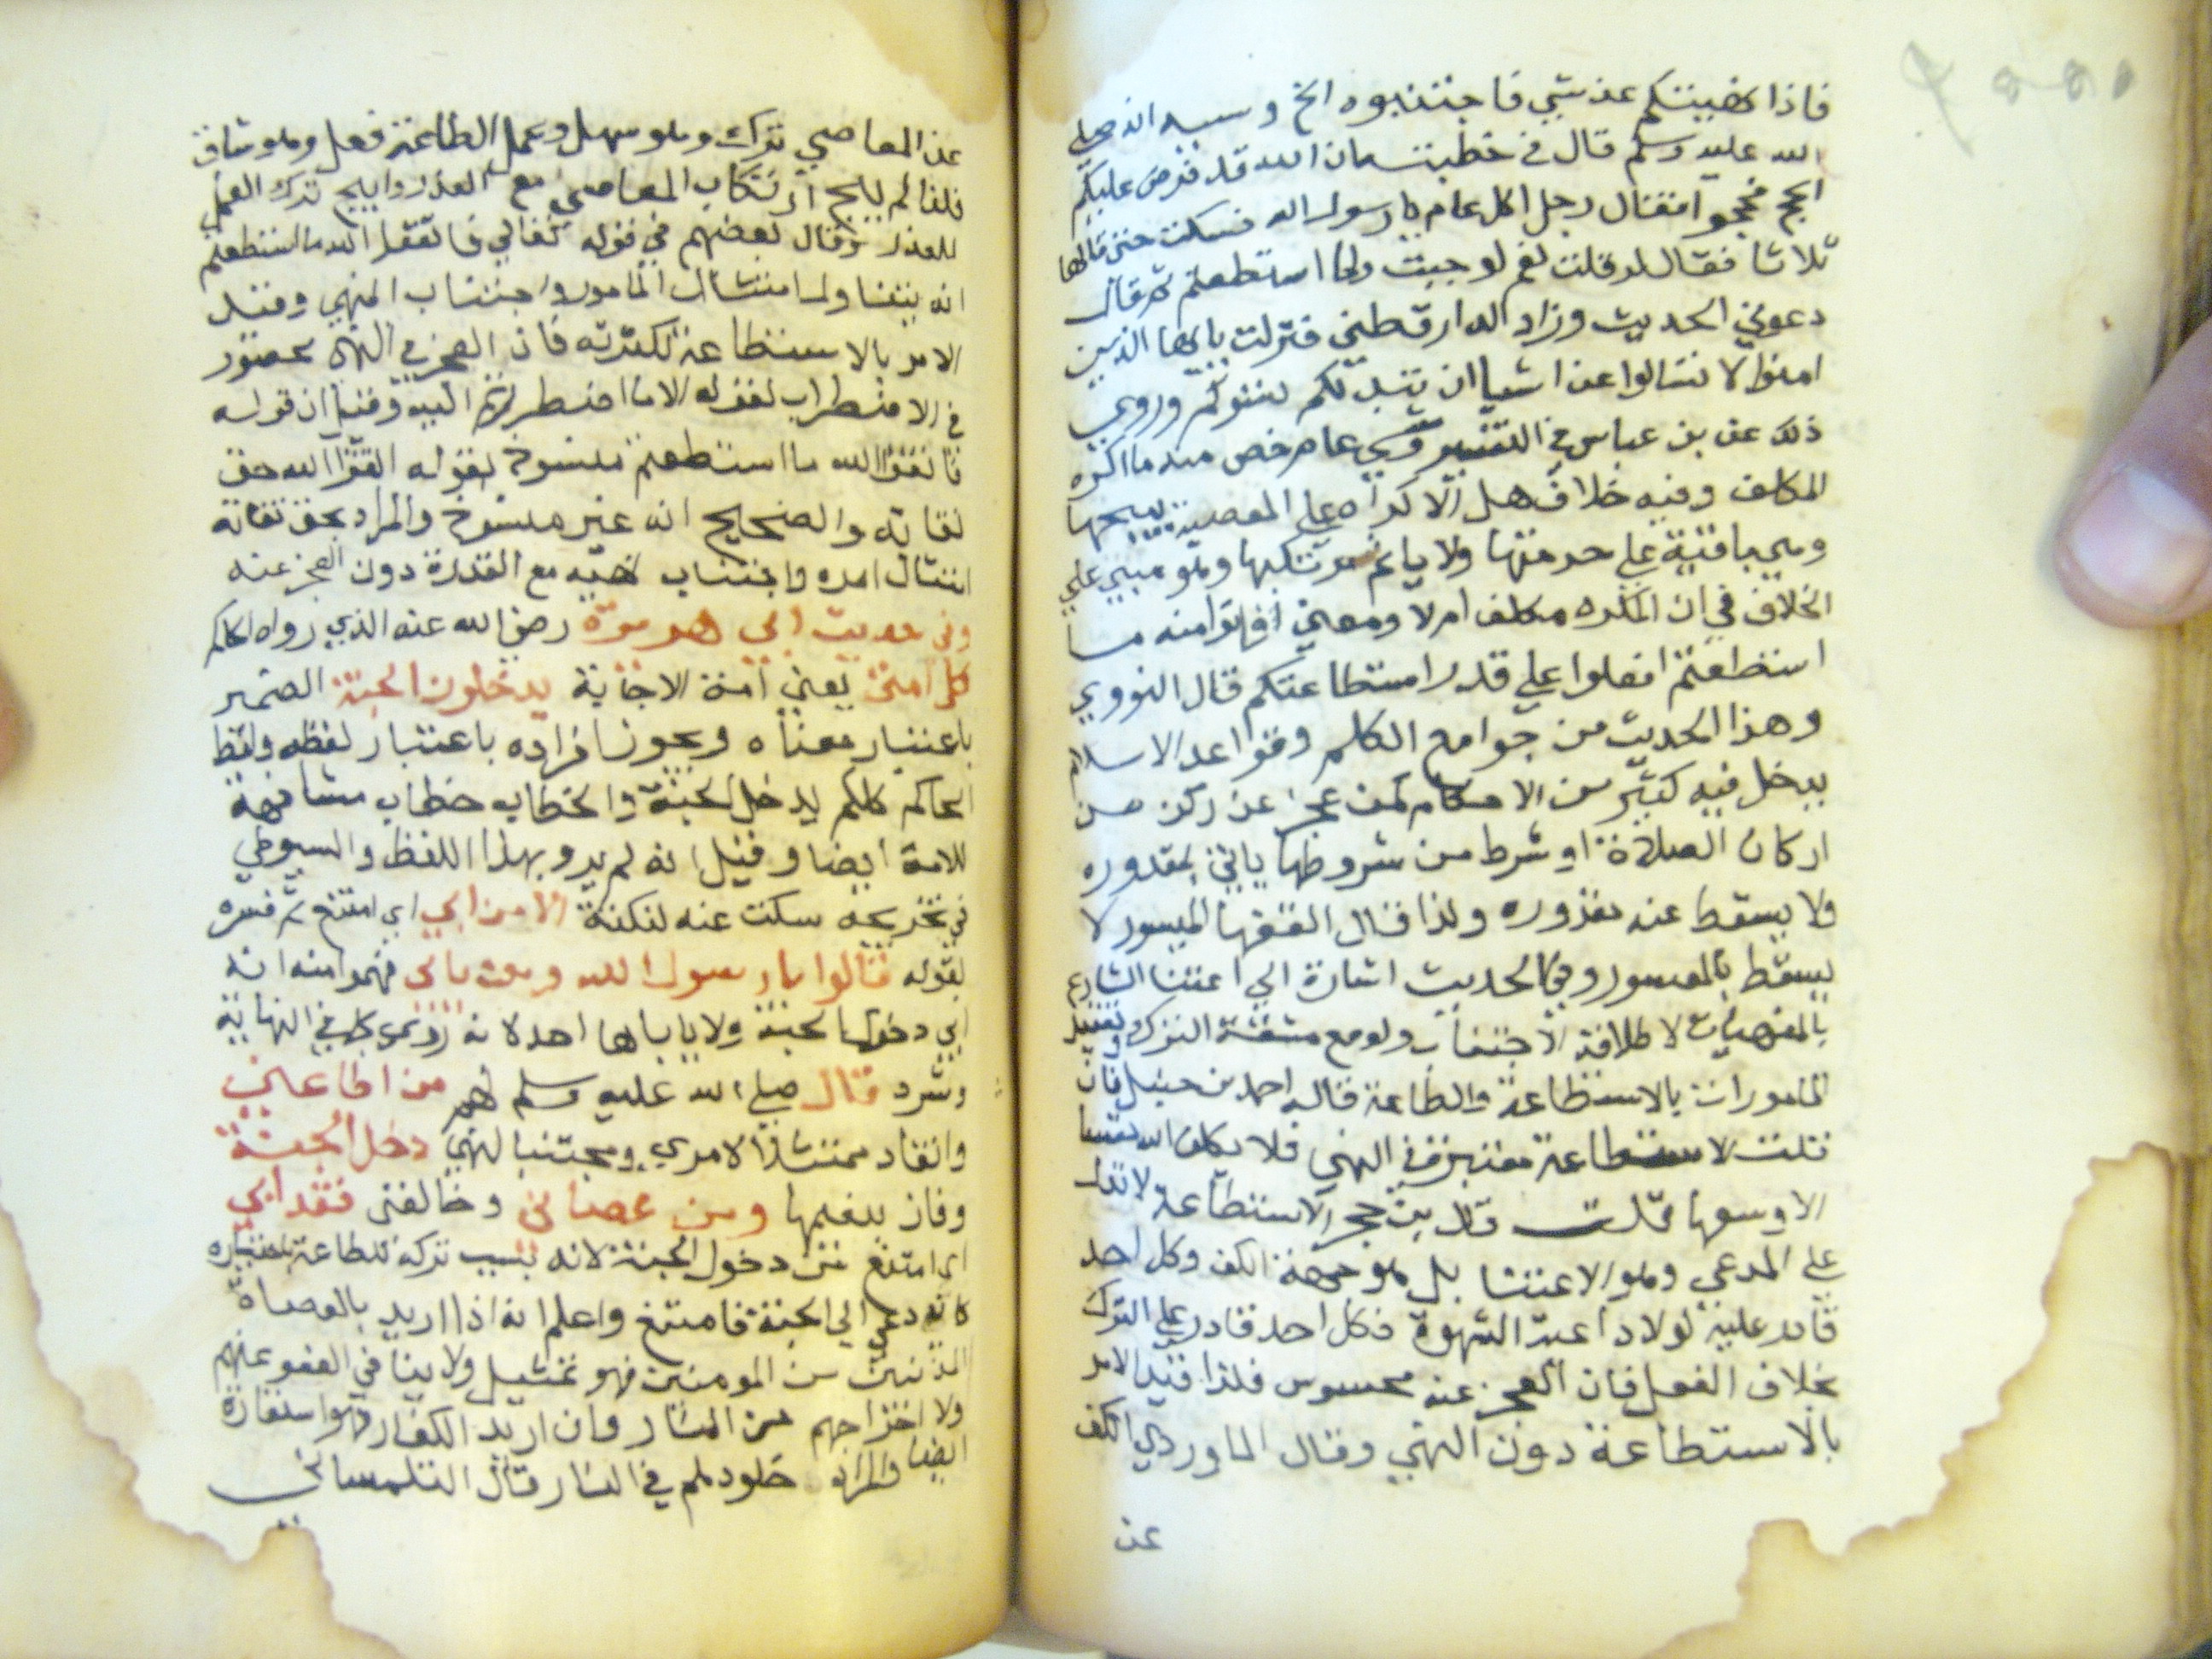 فاذا نهيتكم عن شي فاجتنبوه الخ وسببه انه صلى
الله عليه وسلم قال في خطبته ان الله قد فرض عليكم
الحج فحجوا فقال رجل اكل عام يا رسول الله فسكت حتى قالها
ثلاثا فقال لو قلت نعم لوجبت ولما استطعتم ثم قال
دعوني الحديث وزاد الدارقطني فنزلت يا ايها الذين
امنوا لا تسالوا عن اشيا ان تبد لكم تسؤكم وروي
ذلك عن بن عباس في التفسير عام خص منه ما اكره
المكلف وفيه خلاف هل الاكراه على المعصية يبيحها
وهي باقية على حرمتها ولا ياثم مرتكبها وهو مبني على
الخلاف في ان المكره مكلف ام لا ومعنى فاتوا منه ما
استطعتم افعلوا على قدر استطاعتكم قال النووي
وهذا الحديث من جوامع الكلم وقواعد الاسلام
يدخل فيه كثير من الاحكام كمن عجز عن ركن من
اركان الصلاة او شرط من شروطها ياتي بمقدوره
ولا يسقط عنه مقدوره ولذا قال الفقها الميسور لا
يسقط بالمعسور وفي الحديث اشارة الى اعتنا الشارع
بالمنهيات لاطلاقه الاجتناب ولو مع مشقة الترك وتقييد
المامورات بالاستطاعة والطاعة قاله احمد بن حنبل فان
قلت الاستطاعة معتبرة في النهي فلا يكلف الله نفسا
الا وسعها قلت قال بن حجر الاستطاعة لا تدل
على المدعي وهو الاعتنا بل هو جهة الكف وكل احد
قادر عليه لولا داعية الشهوة فكل احد قادر على الترك
بخلاف الفعل فان العجز عنه محسوس فلذا قيد الامر
بالاستطاعة دون النهي وقال الماوردي الكف
عن
عن المعاصي ترك وهو سهل وعمل الطاعة فعل وهو شاق
فلذا لم يبح ارتكاب المعاصي مع العذر وابيح ترك العمل
للعذر وقال بعضهم في قوله تعالي فاتقوا الله ما استطعتم
انه يتناول امتثال المامور واجتناب المنهي وقيد
الامر بالاستطاعة لكثرته فان العجز في النهي محصور
في الاضطرار لقوله الا ما اضطررتم اليه وقيل ان قوله
فاتقوا الله ما استطعتم منسوخ بقوله اتقوا الله حق
تقاته والصحيح انه غير منسوخ والمراد بحق تقاته
امتثال امره واجتناب نهيه مع القدرة دون العجز عنه
وفي حديث ابي هريرة رضي الله عنه الذي رواه الحاكم
كل امتي يعني امة الاجابة يدخلون الجنة الضمير
باعتبار معناه ويجوز افراده باعتبار لفظه ولفظ
الحاكم كلكم يدخل الجنة والخطاب خطاب مشافهة
للامة ايضا وقيل انه لم يرو بهذا اللفظ والسيوطي
في تخريجه سكت عنه لنكتة الا من ابي اي امتنع ثم فسره
بقوله قالوا يا رسول الله ومن يابى فهموا منه انه
ابي دخول الجنة ولا ياباها احد لانه روي كما في النهاية
وشرد قال صلى الله عليه وسلم لهم من اطاعني
وانقاد ممتثلا لامري ومجتنبا لنهيي دخل الجنة
وفاز بنعيمها ومن عصاني وخالفني فقد ابي
اي امتنع من دخول الجنة لانه بسبب تركه للطاعة باختياره
كانه دعي الي الجنة فامتنع واعلم انه اذا اريد بالعصاة
المذنبين من المومنين فهو تمثيل ولا ينافي العفو عنهم
ولا اخراجهم من النار وان اريد الكفار فهو استعارة
ايضا والمراد خلودهم في النار قال التلمساني